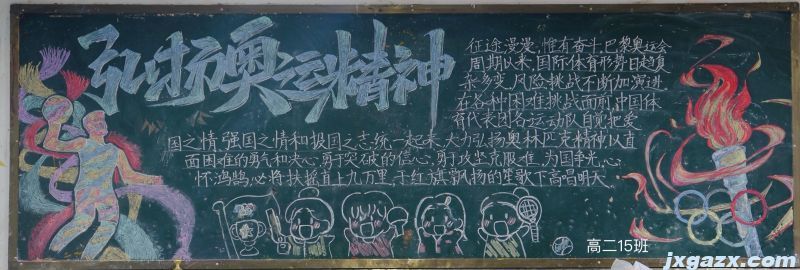 弘扬奥运精神
征途漫漫,惟有奋斗.巴黎奥运会
周期以来,国际体育形势日趋复
杂多变,风险挑战不断加演进.
在各种困难挑战面前,中国体
育代表团各运动队自觉把爱
国之情、强国之情和报国之志,统一起来,大力弘扬奥林匹克精神以直
面困难的勇气和决心,勇于突破的信心,勇于攻坚克服难,为国争光,心
怀鸿鹄,必将扶摇直上九万里,于红旗飘扬的笙歌下高唱明天.
高二15班
jxgazx.com